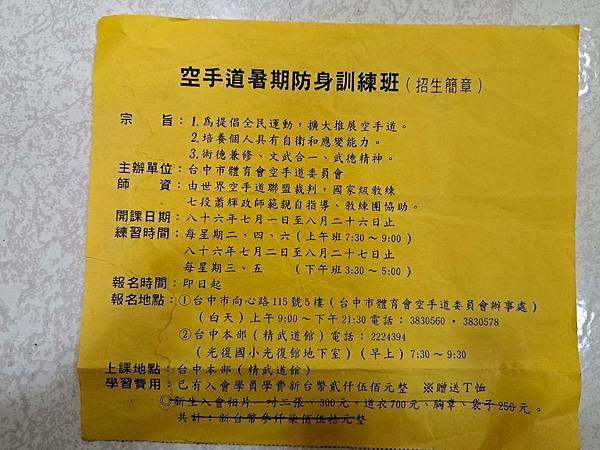 空手道暑期防身訓練班(招生簡章)
宗　旨：1.為提倡全民運動，擴大推展空手道。
2.培養個人具有自衛和應變能力。
3.術德兼修、文武合一、武德精神。
主辦單位：台中市體育會空手道委員會
師　資：由世界空手道聯盟裁判，國家級教練
七段蕭輝政師範親自指導、教練團協助。
開課日期：八十六年七月一日至八月二十六日止
練習時間：每星期二、四、六(上午班7:30～9:00)
八十六年七月二日至八月二十七日止
每星期三、五　(下午班3:30～5:00)
報名時間：即日起
報名地點：①台中市向心路115號5樓(台中市體育會空手道委員會辦事處)
(白天)上午9:00～下午21:30電話：3830560・3830578
②台中本部(精武道館)電話：2224394
(光復國小光復館地下室)(早上)7:30～9:30
上課地點：台中本部(精武道館)
學習費用：已有入會學員學費新台幣貳仟伍佰元整　※贈送T恤
◎新生入會相片一吋二張、300元，道衣700元、胸章、袋子250元。
共計：新台幣參仟柒佰伍拾元整